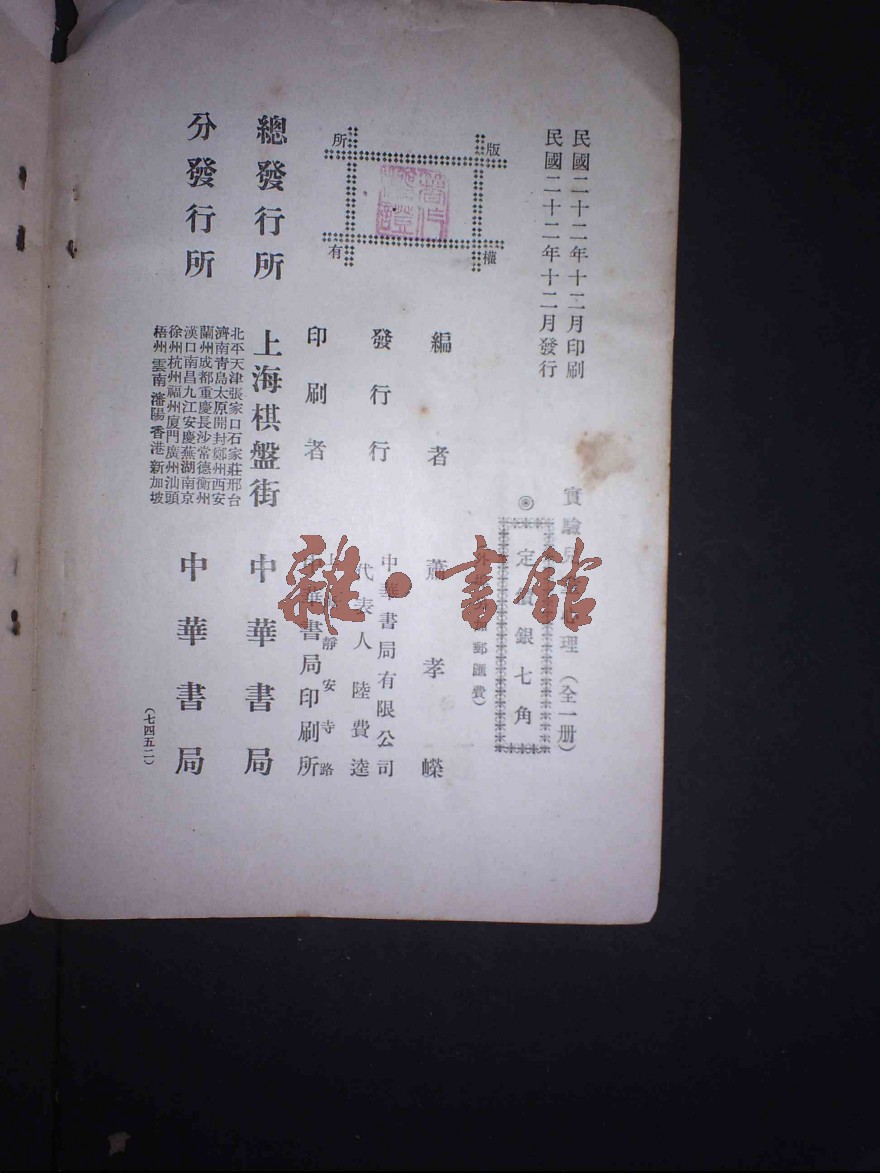 民國二十二年十二月印刷
民國二十二年十二月發行
實驗兒
理（全一册）
◎
定
銀七角
郵匯費）
版權所有
編者
蕭孝嶸
發行行
中華書局有限公司
代表人陸費逵
印刷者
上
靜安寺路
中華書局印刷所
總發行所
上海棋盤街
中華書局
分發行所
北平天津張家口石家莊邢台
濟南青島太原開封鄭州西安
蘭州成都重慶長沙常德衡州
漢口南昌九江安慶蕪湖南京
徐州杭州福州廈門廣州汕頭
梧州雲南瀋陽香港新加坡
中華書局
（七四五二）
雜·書館